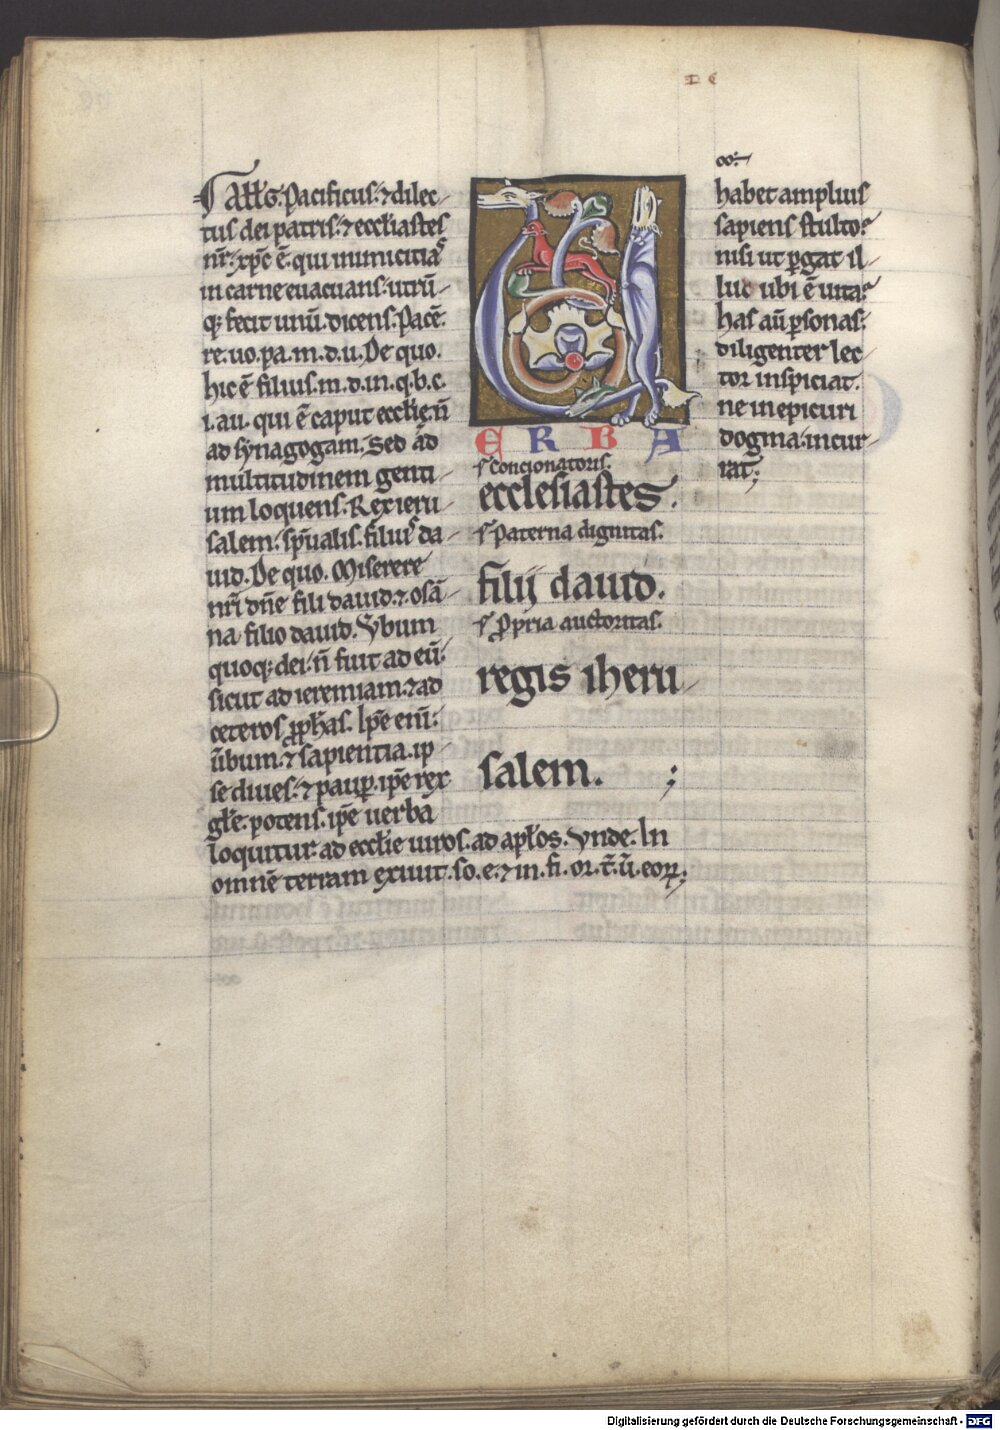 Allḡ. Pacificus. ⁊ dilec-
tus dei patris. ⁊ eccl̄iastes
nr̄. xp̄c ē. qui inimicitias
in carne euacuans. utrū-
q; fecit unū. dicens. Pacē.
re. uo. pa. m. d. u. De quo.
hic ē filius. m. d. in. q. b. c.
i. au. qui ē caput eccl̄ie. n̄
ad synagogam. Sed ad
multitudinem genti-
um loquens. Rex ieru-
salem. sp̄ualis. filius da-
uid. De quo. Miserere
nr̄i dn̄e fili dauid. ⁊ osā-
na filio dauid. Vbum
quoq; dei. n̄ fuit ad eū.
sicut ad ieremiam. ⁊ ad
ceteros ꝓph̄as. Ip̄e eni:
ūbum. ⁊ sapientia. ip-
se diues. ⁊ paup̱. ip̄e rex
gl̄e. potens. ip̄e uerba
loquitur. ad eccl̄ie uiros. ad apl̄os. Vnde. In
omnē terram exiuit. so. e. ⁊ in. fi. or. t̄. ū. eoꝝ;
V
ERBA
s̄ concionatoris.
ecclesiastes.
s̄ Paterna dignitas.
filij dauid.
s̄ Ꝓpria auctoritas.
regis iheru-
salem. ;
habet amplius
sapiens stulto?
nisi ut ꝑgat il-
luc ubi ē uita?
has aū ꝑsonas.
diligenter lec-
tor inspiciat.
ne in epicuri
dogma. incur-
rat;
Digitalisierung gefördert durch die Deutsche Forschungsgemeinschaft - DFG